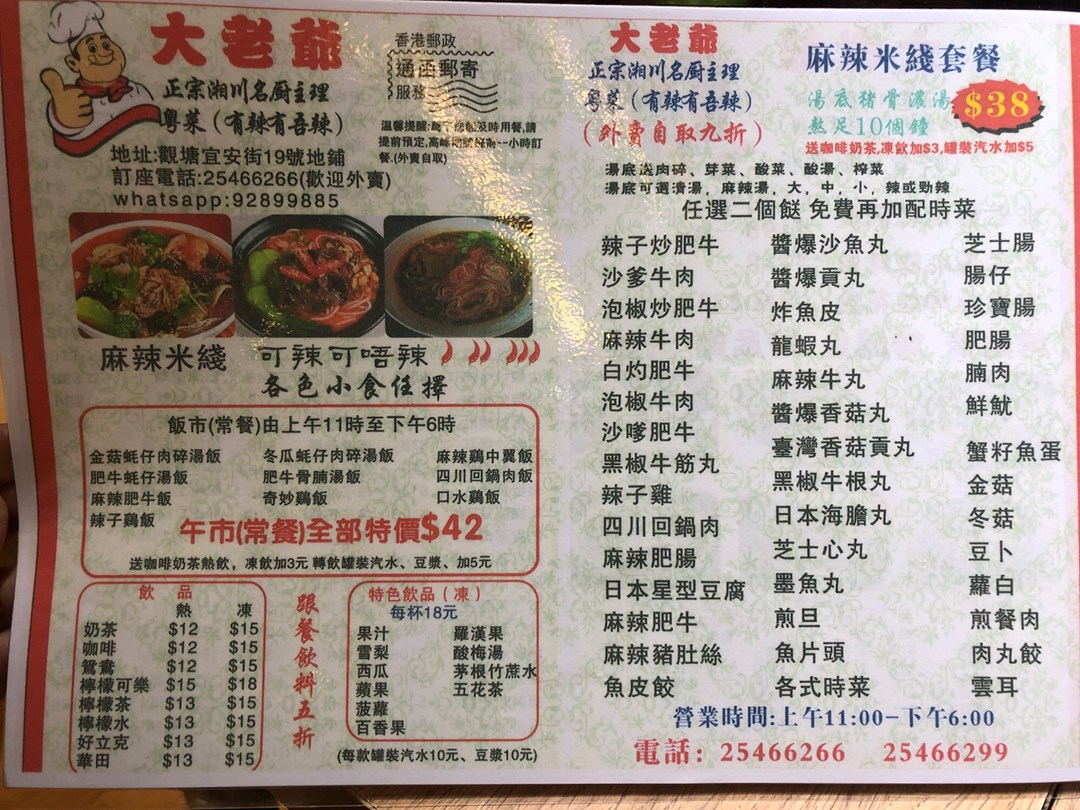 大老爺
正宗湘川名厨主理
粤菜（有辣有吾辣）
香港郵政
通函郵寄
服務
温馨提醒:
及時用餐,請
提前預定,高峰
一小時訂
餐.(外賣自取)
地址:觀塘宜安街19號地鋪
訂座電話:25466266(歡迎外賣)
whatsapp:92899885
麻辣米綫 可辣可唔辣
各色小食任擇
飯市(常餐)由上午11時至下午6時
金菇蚝仔肉碎湯飯 冬瓜蚝仔肉碎湯飯 麻辣鷄中翼飯
肥牛蚝仔湯飯 肥牛骨腩湯飯 四川回鍋肉飯
麻辣肥牛飯 奇妙鷄飯 口水鷄飯
辣子鷄飯
午市(常餐)全部特價$42
送咖啡奶茶熱飲，凍飲加3元 轉飲罐裝汽水、豆漿、加5元
飲品
熱 凍
奶茶 $12 $15
咖啡 $12 $15
鴛鴦 $12 $15
檸檬可樂 $15 $18
檸檬茶 $13 $15
檸檬水 $13 $15
好立克 $13 $15
華田 $13 $15
跟餐飲料五折
特色飲品（凍）
每杯18元
果汁 羅漢果
雪梨 酸梅湯
西瓜 茅根竹蔗水
蘋果 五花茶
菠蘿
百香果
(每款罐裝汽水10元、豆漿10元)
大老爺
正宗湘川名厨主理
粤菜（有辣有吾辣）
（外賣自取九折）
麻辣米綫套餐
湯底猪骨濃湯
熬足10個鐘
$38
送咖啡奶茶,凍飲加$3,罐裝汽水加$5
湯底送肉碎、芽菜、酸菜、酸湯、榨菜
湯底可選清湯，麻辣湯，大，中，小，辣或勁辣
任選二個餸 免費再加配時菜
辣子炒肥牛 醬爆沙魚丸 芝士腸
沙爹牛肉 醬爆貢丸 腸仔
泡椒炒肥牛 炸魚皮 珍寶腸
麻辣牛肉 龍蝦丸 肥腸
白灼肥牛 麻辣牛丸 腩肉
泡椒牛肉 醬爆香菇丸 鮮魷
沙嗲肥牛 臺灣香菇貢丸 蟹籽魚蛋
黑椒牛筋丸 黑椒牛根丸 金菇
辣子雞 日本海膽丸 冬菇
四川回鍋肉 芝士心丸 豆卜
麻辣肥腸 墨魚丸 蘿白
日本星型豆腐 煎旦 煎餐肉
麻辣肥牛 魚片頭 肉丸餃
麻辣豬肚絲 各式時菜 雲耳
魚皮餃
營業時間:上午11:00-下午6:00
電話: 25466266 25466299